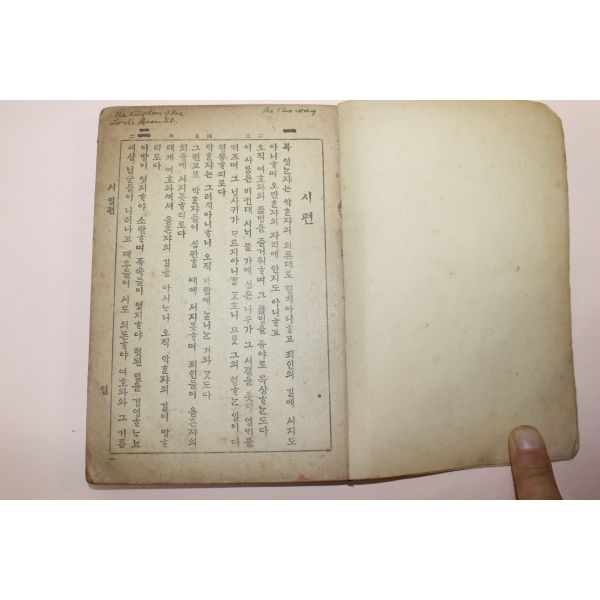 The Two ways
The Kingdom of the
Lord's Anointed.
一
二
시편
복 잇는쟈는 악흔쟈의 의론대로 힝치아니ᄒᆞ고 죄인의 길에 서지도
아니ᄒᆞ며 오만ᄒᆞᆫ쟈의 자리에 안지도 아니ᄒᆞ고
오직 여호와의 률법을 즐거워ᄒᆞ며 그 률법을 쥬야로 묵상ᄒᆞ는도다
이 사ᄅᆞᆷ은 비컨대 시내 물 가에 심은 나무가 그 시졀을 ᄶᅩᆺ차 열믹를
ᄆᆡ즈며 그 닙사귀가 ᄆᆞ르지아니ᄒᆞᆷ ᄀᆞᆺᄒᆞ니 므릇 그의 힝ᄒᆞ는 일이 다
형통ᄒᆞ리로다
악ᄒᆞᆫ쟈는 그러치아니ᄒᆞ니 오직 바람에 놀니는 겨와 ᄀᆞᆺ도다
그런고로 악ᄒᆞᆫ쟈들이 심판ᄒᆞᆯ 때에 서지못ᄒᆞ며 죄인들이 올흔쟈의
회즁에 서지못ᄒᆞ리로다
대개 여호와ᄭᅴ셔 올흔쟈의 길을 아시ᄂᆞ니 오직 악ᄒᆞᆫ쟈의 길이 망ᄒᆞ
리로다
이방이 엇지ᄒᆞ야 소란ᄒᆞ며 족속들이 엇지ᄒᆞ야 헛된 일을 경영ᄒᆞ는뇨
세샹 님군들이 니러나고 졔후들이 서로 의론ᄒᆞ야 여호와와 그 기름
시 일편
일